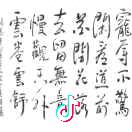 寵辱不驚
閑看庭前
花開花落
去留無意
慢觀天外
雲卷雲舒